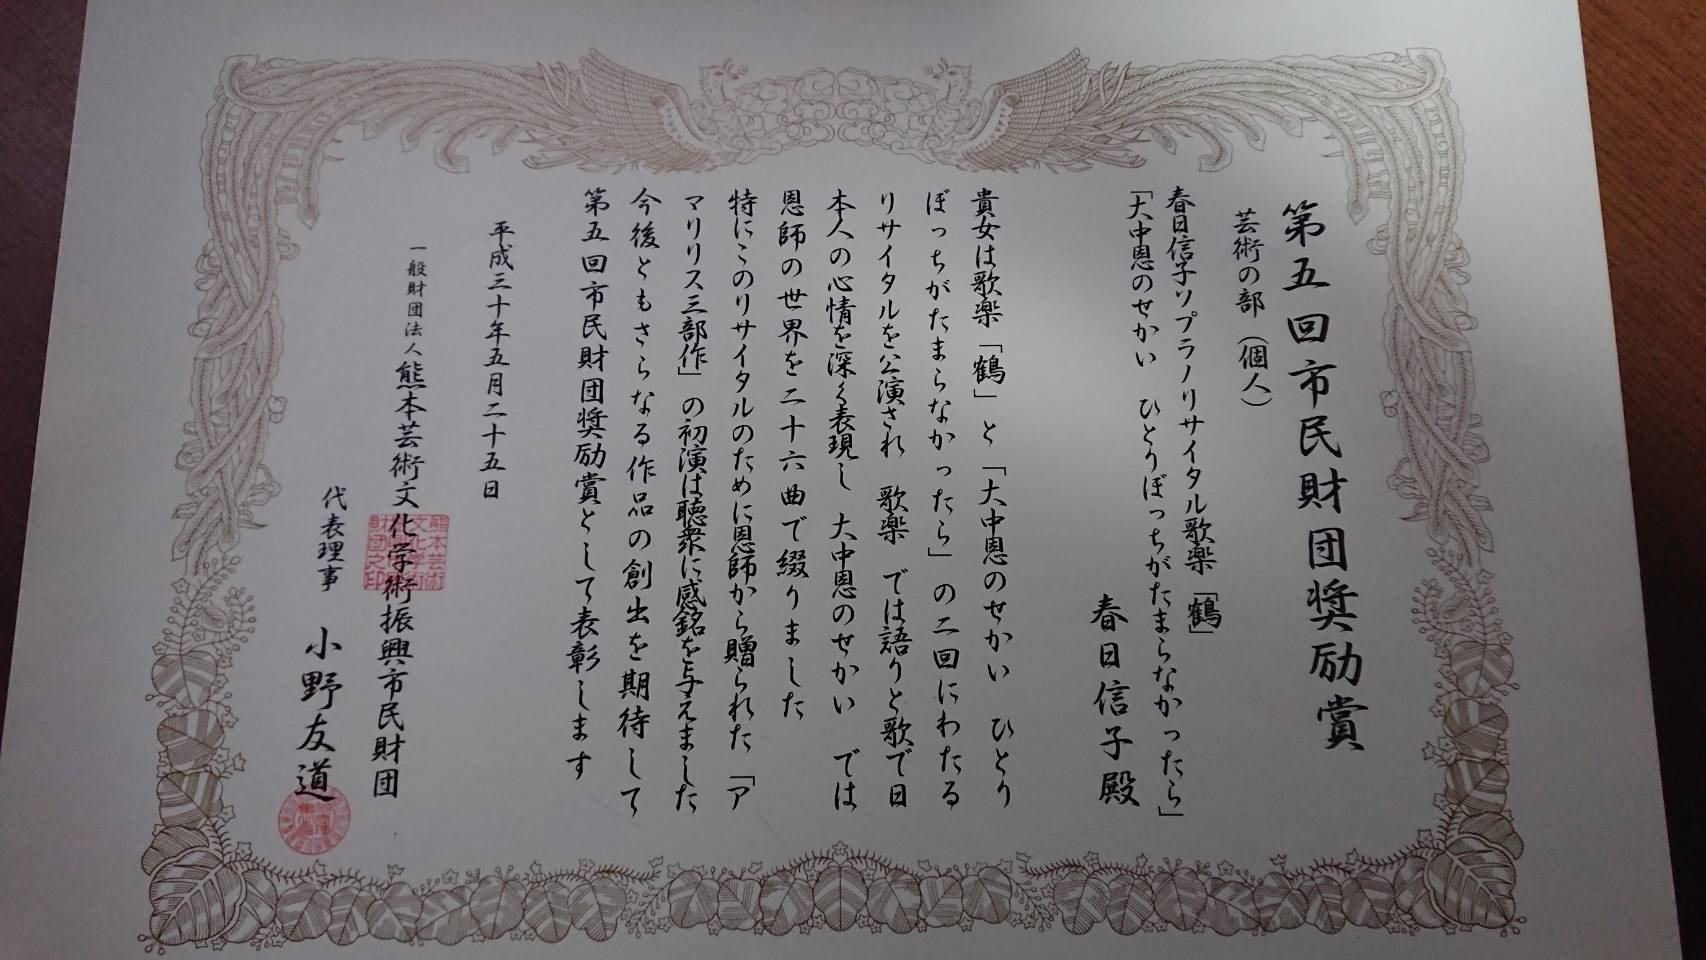 第五回市民財団奨励賞
芸術の部（個人）
春日信子ソプラノリサイタル歌楽「鶴」
「大中恩のせかい　ひとりぼっちがたまらなかったら」
春日信子殿
貴女は歌楽「鶴」と「大中恩のせかい　ひとり
ぼっちがたまらなかったら」の二回にわたる
リサイタルを公演され　歌楽　では語りと歌で日
本人の心情を深く表現し　大中恩のせかい　では
恩師の世界を二十六曲で綴りました
特にこのリサイタルのために恩師から贈られた「ア
マリリス三部作」の初演は聴衆に感銘を与えました
今後ともさらなる作品の創出を期待して
第五回市民財団奨励賞として表彰します
平成三十年五月二十五日
一般財団法人熊本芸術文化学術振興市民財団
代表理事　小野友道